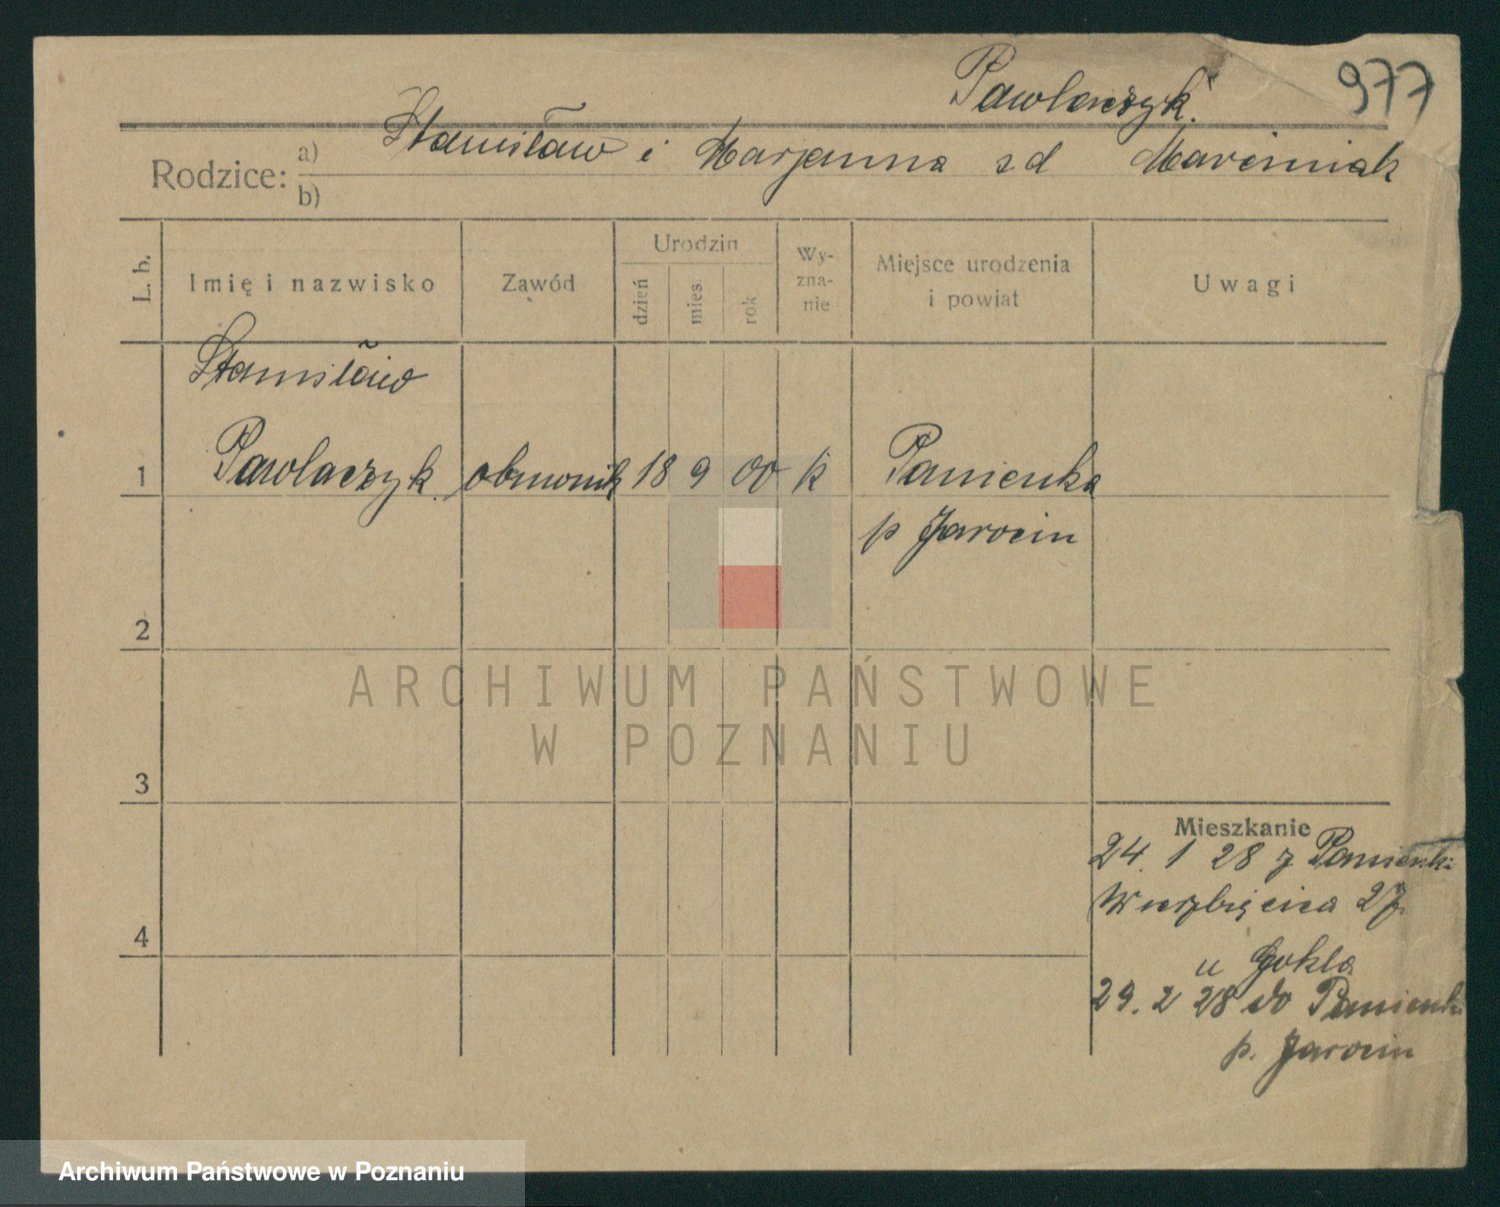 977
Pawlaczyk.
Rodzice: a) Stanisław i Marjanna zd Marciniak
b)
L. b.
Imię i nazwisko
Zawód
Urodzin
dzień
mies.
rok
Wy-
zna-
nie
Miejsce urodzenia
i powiat
Uwagi
Stanisław
1 Pawlaczyk 18 9 00 k Panienka
p Jarocin
2
3
4
Mieszkanie
24. 1 28 z Panienki
Wierzbięcica 27
u
29. 2 28 do Panienki
p. Jarocin
ARCHIWUM PAŃSTWOWE
W POZNANIU
Archiwum Państwowe w Poznaniu